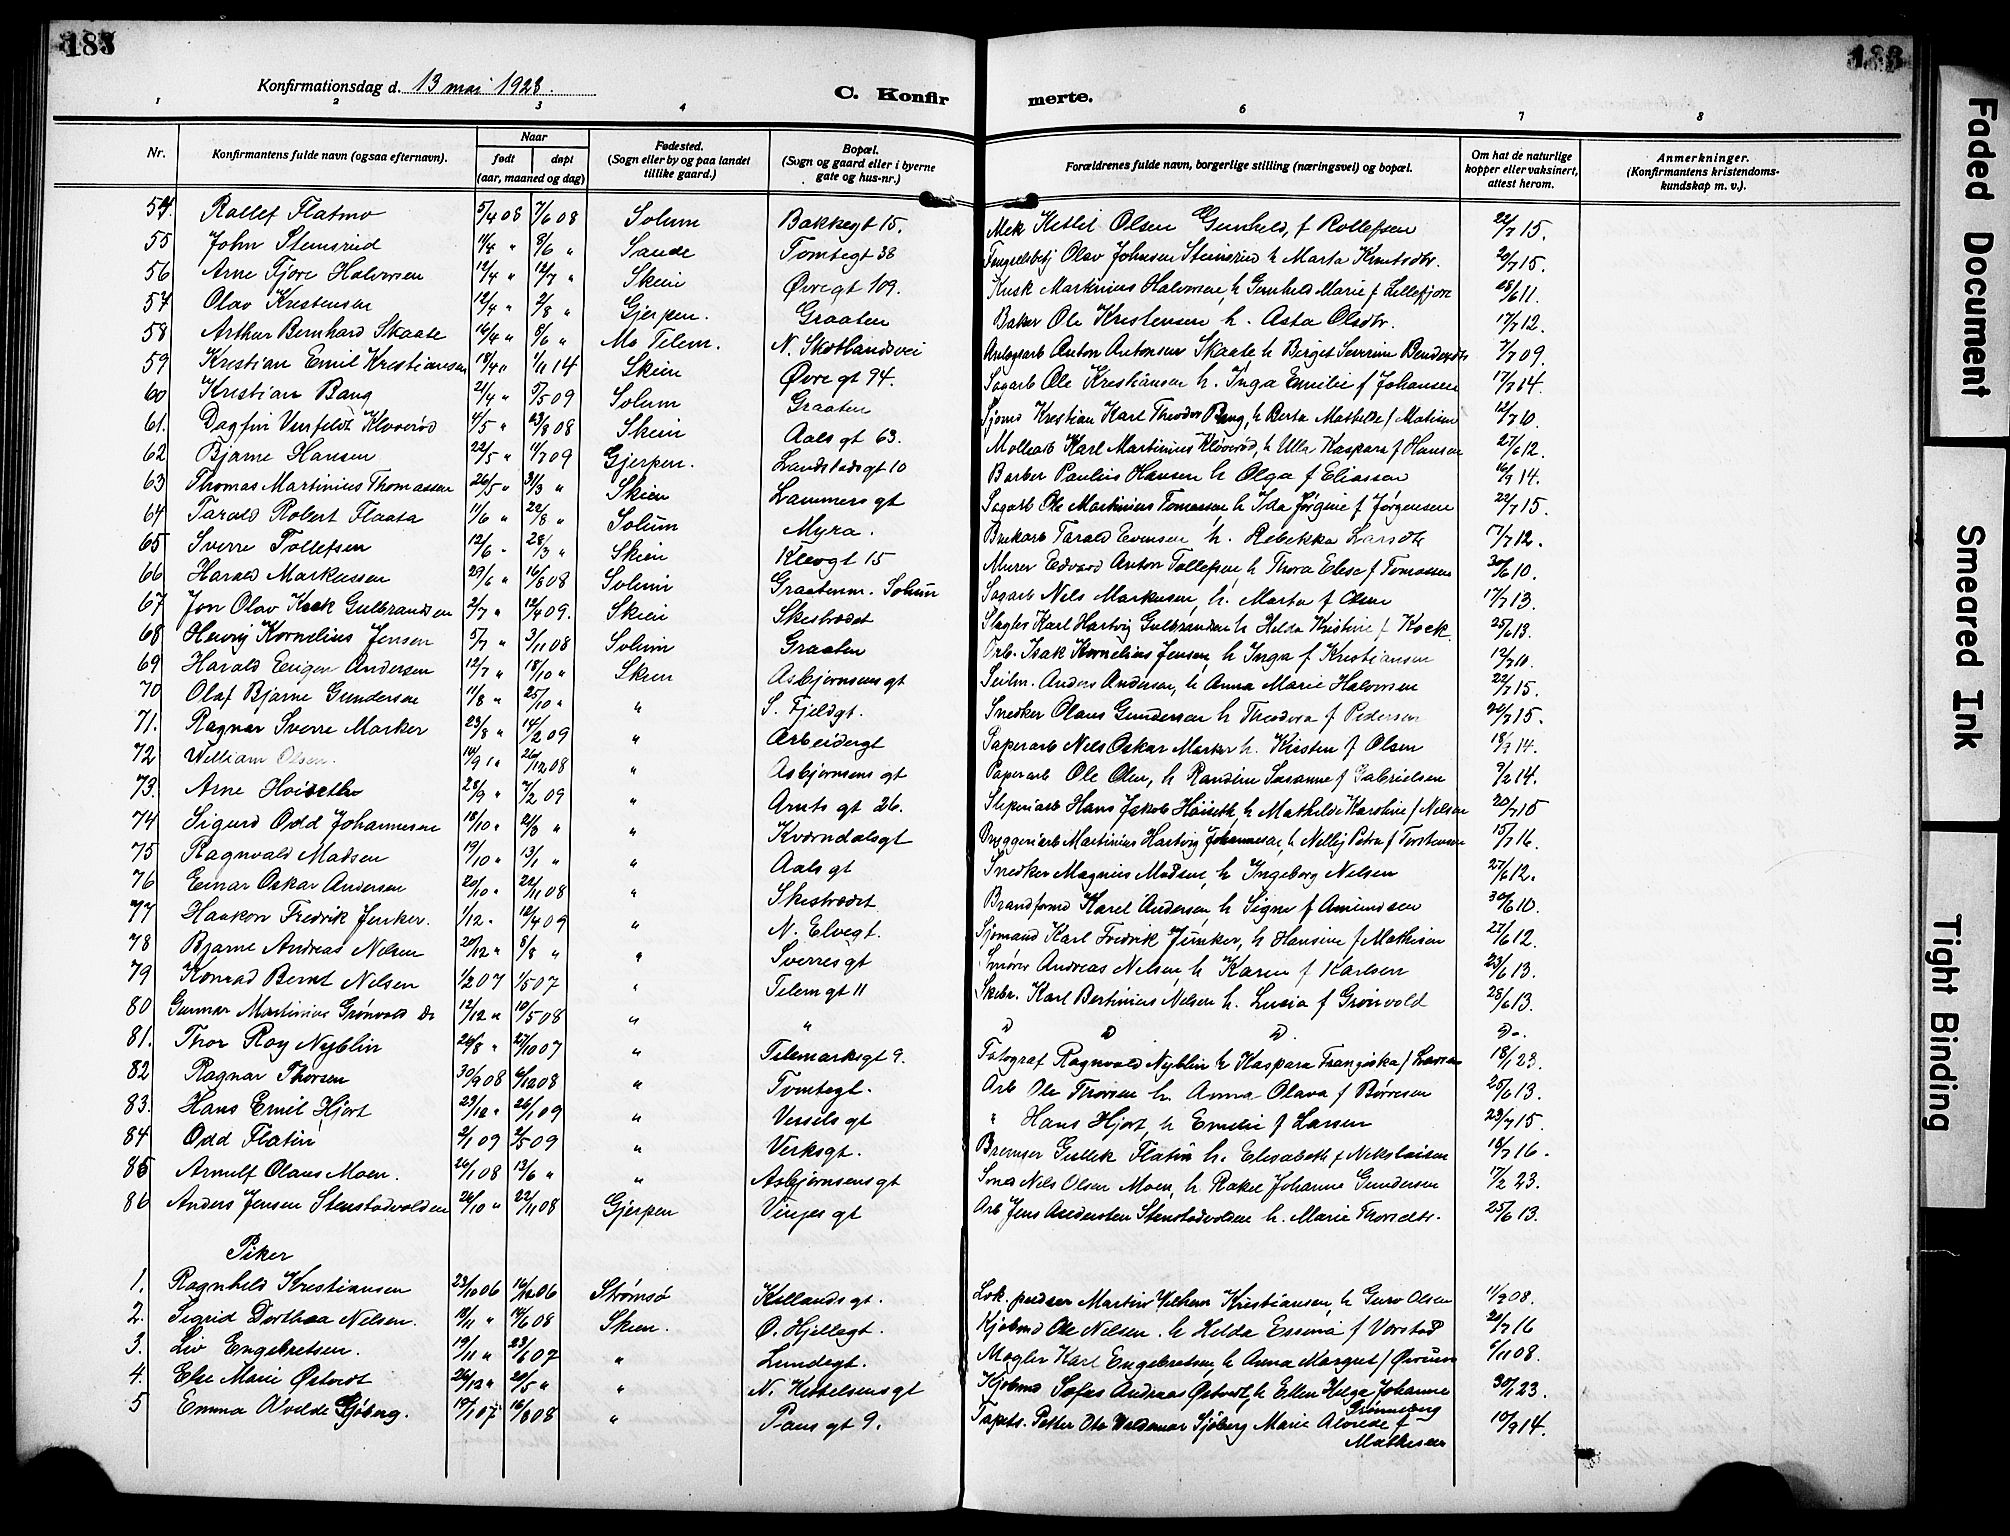 183
183
Konfirmationsdag d. 13 mai 1923.
C. Konfirmerte.
1 2 3 4 6 7 8
Nr. Konfirmantens fulde navn (ogsaa efternavn). Naar født døpt (aar, maaned og dag) Fødested. (Sogn eller by og paa landet tillike gaard.) Bopæl. (Sogn og gaard eller i byerne gate og hus-nr.) Forældrenes fulde navn, borgerlige stilling (næringsvei) og bopæl. Om hat de naturlige kopper eller vaksinert, attest herom. Anmerkninger. (Konfirmantens kristendoms-kundskap m. v.).
54. Rollef Flatmo 5/4 08 7/6 08 Solum Bakkegt 15. Mek Ketil Olsen Gunhild f Rollefsen 22/7 15.
55 John Stensrud 11/4 " 8/6 " Sande Tomtegt 38 Olav Johnsen Steinsrud h Marta Knutsdtr. 20/7 15.
56 Arne Fjore Halvorsen 12/4 " 12/7 " Skien Øvregt 109. Kusk Martinius Halvorsen, h Gunhild Marie f Lillefjore 28/6 11.
57 Olav Kristensen 12/4 " 2/8 " Gjerpen. Graaten Baker Ole Kristensen h. Asta Olsdtr. 17/7 12.
58 Arthur Bernhard Skaate 16/4 " 8/6 " Mo Telem. N. Skotlandsvei Anton Antonsen Skaate, h Berget Severine 7/7 09.
59 Kristian Emil Kristiansen 18/4 " 1/11 14 Skien Øvre gt 94. Sagarb Ole Kristiansen h. Inga Emilie f Johansen 17/7 14.
60 Kristian Bang 21/4 " 5/5 09 Solum Graaten Sjømd Kristian Karl Theodor Bang, h Berta Mathilde f Matisen 12/7 10.
61. Dagfin Kloverød 4/5 " 23/8 08 Skien Aals gt 63. Karl Martinius Kløverød, h Ulla Kaspara f Hansen 27/6 12.
62 Bjarne Hansen 22/5 " 11/7 09 Gjerpen. Landstads gt 10 Barber Paulius Hansen h Olga f Eliassen 16/9 14.
63 Thomas Martinius Thomassen 26/5 " 31/3 " Skien Lammers gt Sagarb Ole Martinius Tomassen h Ida Jørgine f Jørgensen 22/7 15.
64 Tarald Robert Flaata 11/6 " 22/8 " Solum Myra. Brukarb Tarald Evensen h. Rebekka Larsdtr 17/7 12.
65 Sverre Tollefsen 12/6 " 28/3 " Skien Klevgt 15 Murer Edvard Anton Tollefsen, h Thora Elise f Tomassen 30/6 10.
66 Harald Markussen 29/6 " 16/8 08 Solum Graatenm. Solum Sagarb Nels Markusen, h. Marta f Olsen 17/7 13.
67 Jon Olav Kock Gulbrandsen 2/7 " 12/4 09. Skien Skistrædet Slagter Karl Hartvig Gulbrandsen h Hilda Kristine f Kock. 25/6 13.
68 Henrij Kornelius Jensen 5/7 " 3/11 08 Solum Graaten Arb. Isak Kornelius Jensen, h Inga f Kristiansen 12/7 10.
69 Harald Eugen Andersen 12/7 " 18/10 " Skien Asbjørnsens gt Seilm. Anders Andersen, h Anna Marie Halvorsen 22/7 15.
70 Olaf Bjarne Gundersen 11/8 " 25/10 " " S. Fjeldgt. Snedker Olaus Gundersen h Theodora f Pedersen 20/7 15.
71. Ragnar Sverre Marker 23/8 " 14/2 09 " Arbeidergt Papirarb Nels Oskar Marker h. Kirsten f Olsen 18/7 14.
72 William Olsen 14/9 " 26/12 08 " Asbjørnsens gt Papirarb Ole Olsen, h Randine Susanne f Gabrielsen 9/2 14.
73. Arne Hoiseth 28/9 " 7/2 09 " Arnts gt 26. Hans Jakob Høiseth, h Mathilde Karoline f Nelsen 20/7 15
74 Sigurd Odd Johannesen 18/10 " 21/3 " " Kværndalsgt Bryggeriarb Martinius Hartvig Johannesen, h Nellij Petra f Torstensen 15/7 16.
75 Ragnvald Madsen 19/10 " 13/1 " " Aals gt Snedker Magnus Madsen, h Ingeborg Nelsen 27/6 12.
76 Einar Oskar Andersen 20/10 " 22/11 08 " Skistrædet Brandformd Karel Andersen, h Signe f Amundsen 30/6 10.
77 Haakon Fredrik Junker. 1/12 " 12/4 09 " N. Elvegt. Sjømand Karl Fredrik Junker, h Hansine f Mathisen 22/6 12.
78 Bjarne Andreas Nelsen 20/12 " 8/8 " " Sverres gt Andreas Nelsen, h Karen f Karlsen 23/6 13.
79 Konrad Bernt Nelsen 1/2 07 1/5 07 " Telem gt 11 Karl Bertinius Nelsen h. Lusia f Grönvold 28/6 13.
80 Gunnar Martinius Grønvold 12/12 " 10/5 08 " " " " " "
81. Thor Roy Nyblin 24/8 " 27/10 07 " Telemarksgt 9. Fotograf Ragnvald Nyblin h Kaspara Franziska f Larsen 18/1 23.
82 Ragnar Thorsen 30/9 08 6/12 08 " Tomtegt. Arb Ole Thorsen h. Anna Olava f Børresen 25/6 13.
83. Hans Emil Hjort 29/12 " 26/1 09 " Vessels gt " Hans Hjort, h Emilie f Larsen 23/7 15.
84 Odd Flatin 2/1 09 2/5 09 " Verksgt. Bremser Gullik Flatin h. Elisabeth f Nikolaisen 18/7 16.
85 Arnulf Olaus Moen. 26/1 08 13/6 " " Asbjørnsens gt Smed Nels Olsen Moen, h Rakel Johanne Gundersen 17/2 23.
86 Anders Jensen Stenstadvolden 26/10 " 22/11 08 Gjerpen Vinjes gt Arb Jens Andersten Stenstadvolden h. Marie Thorsdtr. 25/6 13.
Piker
1. Ragnhild Kristiansen 23/10 06 16/12 06 Strømsø Kiellands gt. Lok. pudser Martin Vilhem Kristiansen, h Guro Olsen 1/9 08.
2. Sigrid Dorthea Nelsen. 18/11 " 14/6 08 Skien. Ø. Hjellegt. Kjøbmd Ole Nelsen. h Hilda f Vorstad 20/7 16
3. Liv Engebretsen. 19/11 " 23/6 07 " Lundegt. Mægler Karl Engebretsen, h Anna Margret f 6/11 08.
4. Else Marie Østvedt 26/12 " 20/5 " " N. Kittelsens gt Kjøbmd Sofus Andreas Østvedt, h Ellen Helga Johanne Grønneberg 30/1 23.
5 Emma Alvilde Sjøberg. 19/1 07 16/8 08 " Paus gt 9. Petter Oto Valdemar Sjöberg Marie Alvilde f Mathisen 10/9 14.
Faded Document
Smeared Ink
Tight Binding